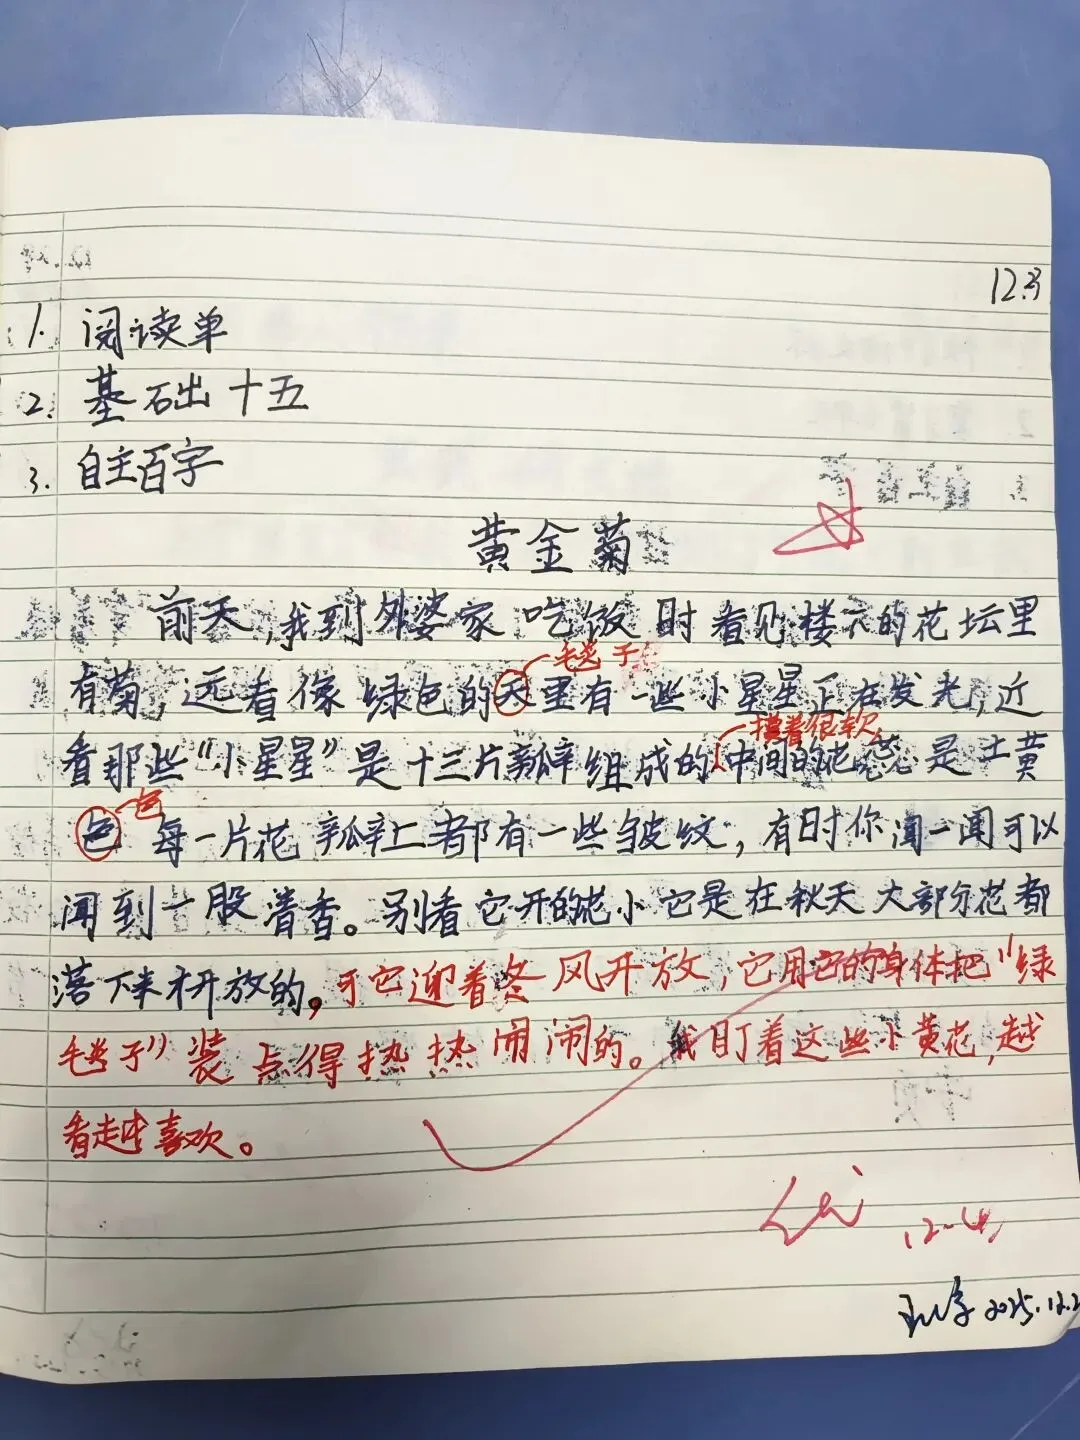 12.3
1. 阅读单
2. 基础十五
3. 自主百字
黄金菊
前天，我到外婆家吃饭时看见楼下的花坛里
毯子
有菊，远看像绿色的天里有一些小星星正在发光，近
摸着很软，
看那些“小星星”是十三片瓣组成的中间的花蕊是土黄
色
色 每一片花瓣上都有一些皱纹，有时你闻一闻可以
闻到一股清香。别看它开的花小它是在秋天大部分花都
落下来才开放的，可它迎着冬风开放，它用它的身体把“绿
毯子”装点得热热闹闹的。我盯着这些小黄花，越
看越喜欢。
12-4
2025.12.